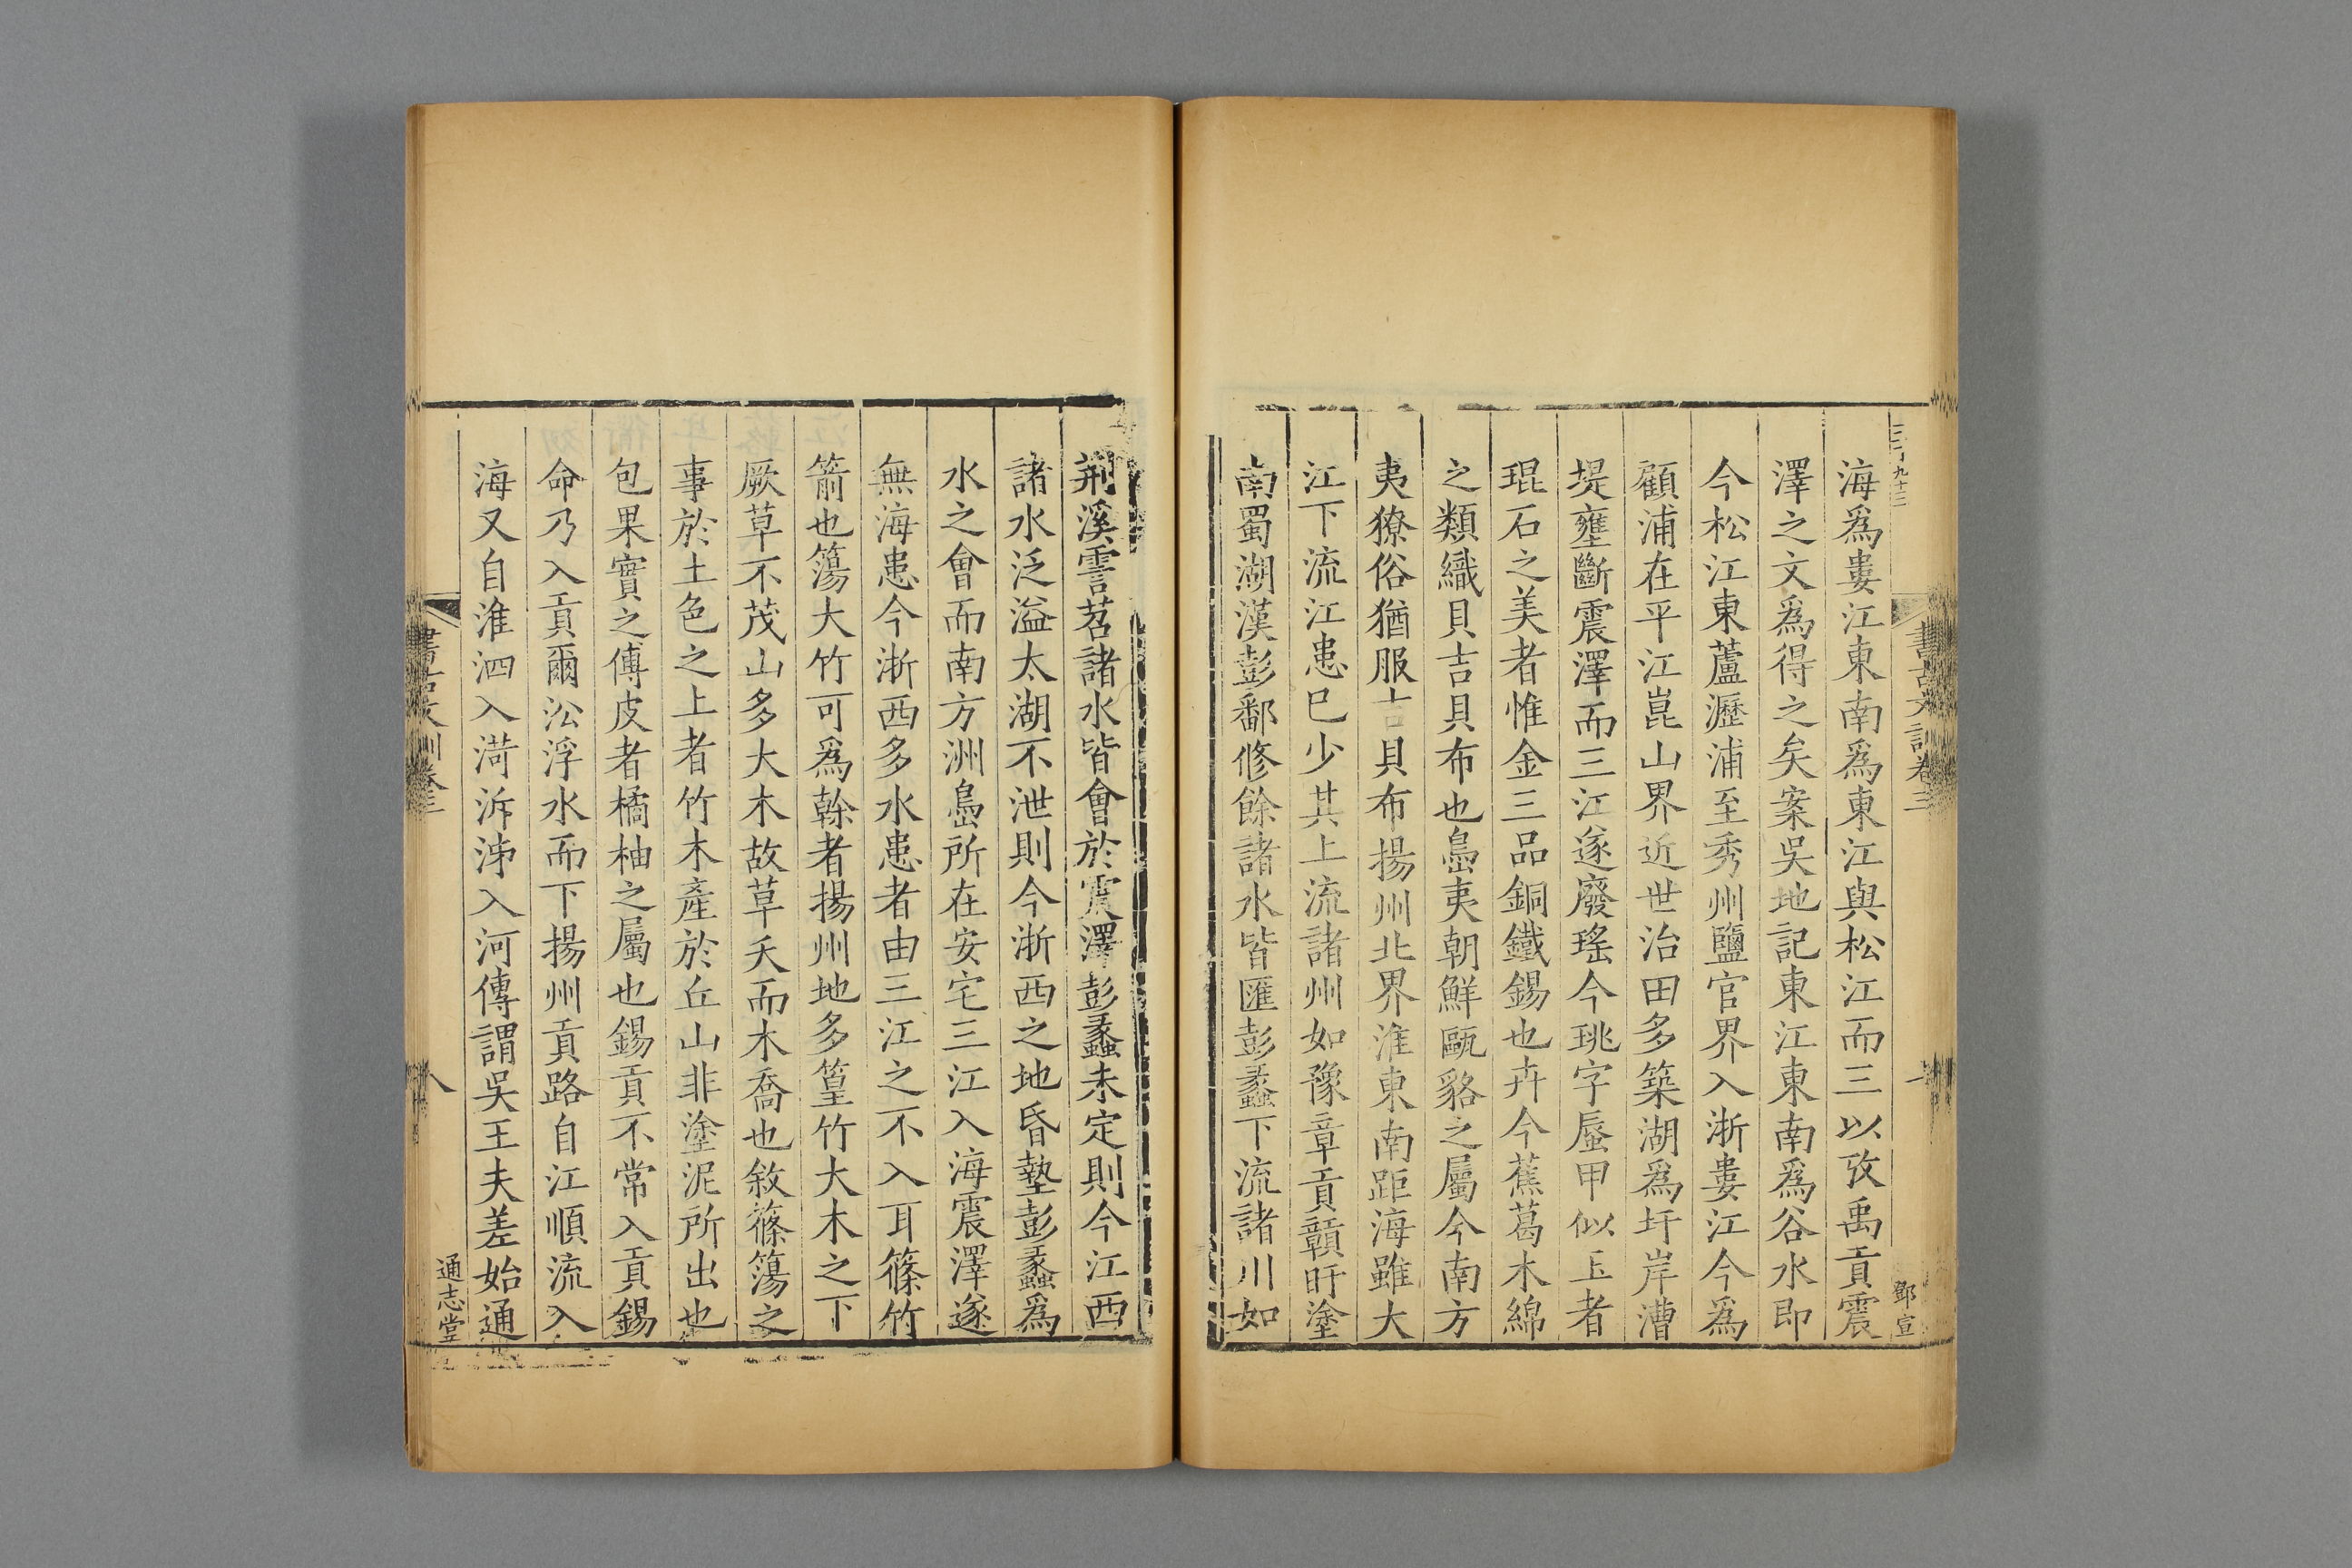 海爲婁江東南爲東江與松江而三以攷禹貢震
澤之文爲得之矣案吳地記東江東南爲谷水即
今松江東蘆瀝浦至秀州鹽官界入浙婁江今爲
顧浦在平江崑山界近世治田多築湖爲圩岸漕
堤壅斷震澤而三江遂廢瑤今珧字蜃甲似玉者
琨石之美者惟金三品銅鐵錫也卉今蕉葛木綿
之類織貝吉貝布也島夷朝鮮甌貉之屬今南方
夷獠俗猶服吉貝布揚州北界淮東南距海雖大
江下流江患巳少其上流諸州如豫章貢贑旴塗
南蜀湖漢彭鄱修餘諸水皆匯彭蠡下流諸川如
書古文訓卷三
鄧宣
荆溪霅苕諸水皆會於震澤彭蠡未定則今江西
諸水泛溢太湖不泄則今浙西之地昏墊彭蠡爲
水之會而南方洲島所在安宅三江入海震澤遂
無海患今浙西多水患者由三江之不入耳篠竹
箭也簜大竹可爲榦者揚州地多篁竹大木之下
厥草不茂山多大木故草夭而木喬也敘篠簜之
事於土色之上者竹木產於丘山非塗泥所出也
包果實之傅皮者橘柚之屬也錫貢不常入貢錫
命乃入貢爾㳂浮水而下揚州貢路自江順流入
海又自淮泗入渮泝泲入河傳謂吳王夫差始通
書古文訓卷三
八
通志堂